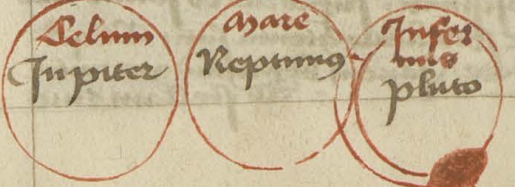 Celum
Jupiter
Mare
Neptunus
Infer
nus
pluto